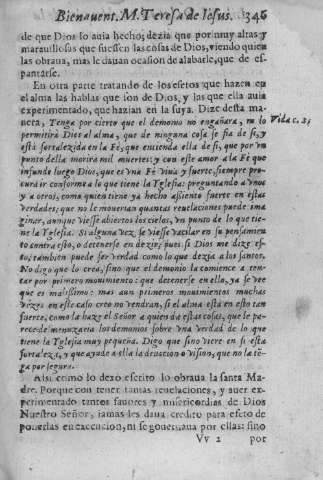 Bienauent. M. Teresa de Iesus. 346
de que Dios lo auia hecho; dezia que por muy altas y
marauillosas que fuessen las cosas de Dios, viendo quien
las obraua, mas le dauan ocasion de alabarle, que de es-
pantarse.
En otra parte tratando de los efetos que hazen en
el alma las hablas que son de Dios, y los que ella auia
experimentado, que hazian en la suya. Dize desta ma-
neta, Tengo por cierto que el demonio no engañara, ni lo
Vida c. 25
permitirà Dios al alma, que de ninguna cosa se fia de si, y
està fortalezida en la Fè, que entienda ella de si, que por vn
punto della morira mil muertes: y con este amor a la Fè que
infunde luego Dios, que es vna Fè viua y fuerte, siempre pro-
cura ir conforme a lo que tiene la Yglesia: preguntando a vnos
y a otros, como quien tiene ya hecho assiento fuerte en estas
verdades; que no le mouerian quantas reuelaciones puede ima
ginar, aunque viesse abiertos los cielos, vn punto de lo que tie-
ne la Yglesia. Si alguna vez se viesse vacilar en su pensamien
to contra esto, o detenerse en dezir; pues si Dios me dize es-
to, tambien puede ser verdad como lo que dezia a los santos.
No digo que lo crea, sino que el demonio la comience a ten-
tar por primero mouimiento: que detenerse en ello, ya se vee
que es malissimo: mas aun primeros mouimientos muchas
vezes en este caso creo no vendran, si el alma està en esto tan
fuerte, como la haze el Señor a quien da estas cosas, que le pa-
rece desmenuzaria los demonios sobre vna verdad de lo que
tiene la Yglesia muy pequeña. Digo que sino viere en si esta
fortaleza, y que ayude a ella la deuocion o vision, que no la tē-
ga por segura.
Assi como lo dexo escrito lo obraua la santa Ma-
dre. Porque con tener tantas reuelaciones, y auer ex-
perimentado tantos fauores y misericordias de Dios
Nuestro Señor, jamas les daua credito para efeto de
ponerlas en execucion, ni se gouernaua por ellas: sino
Vv 2 por